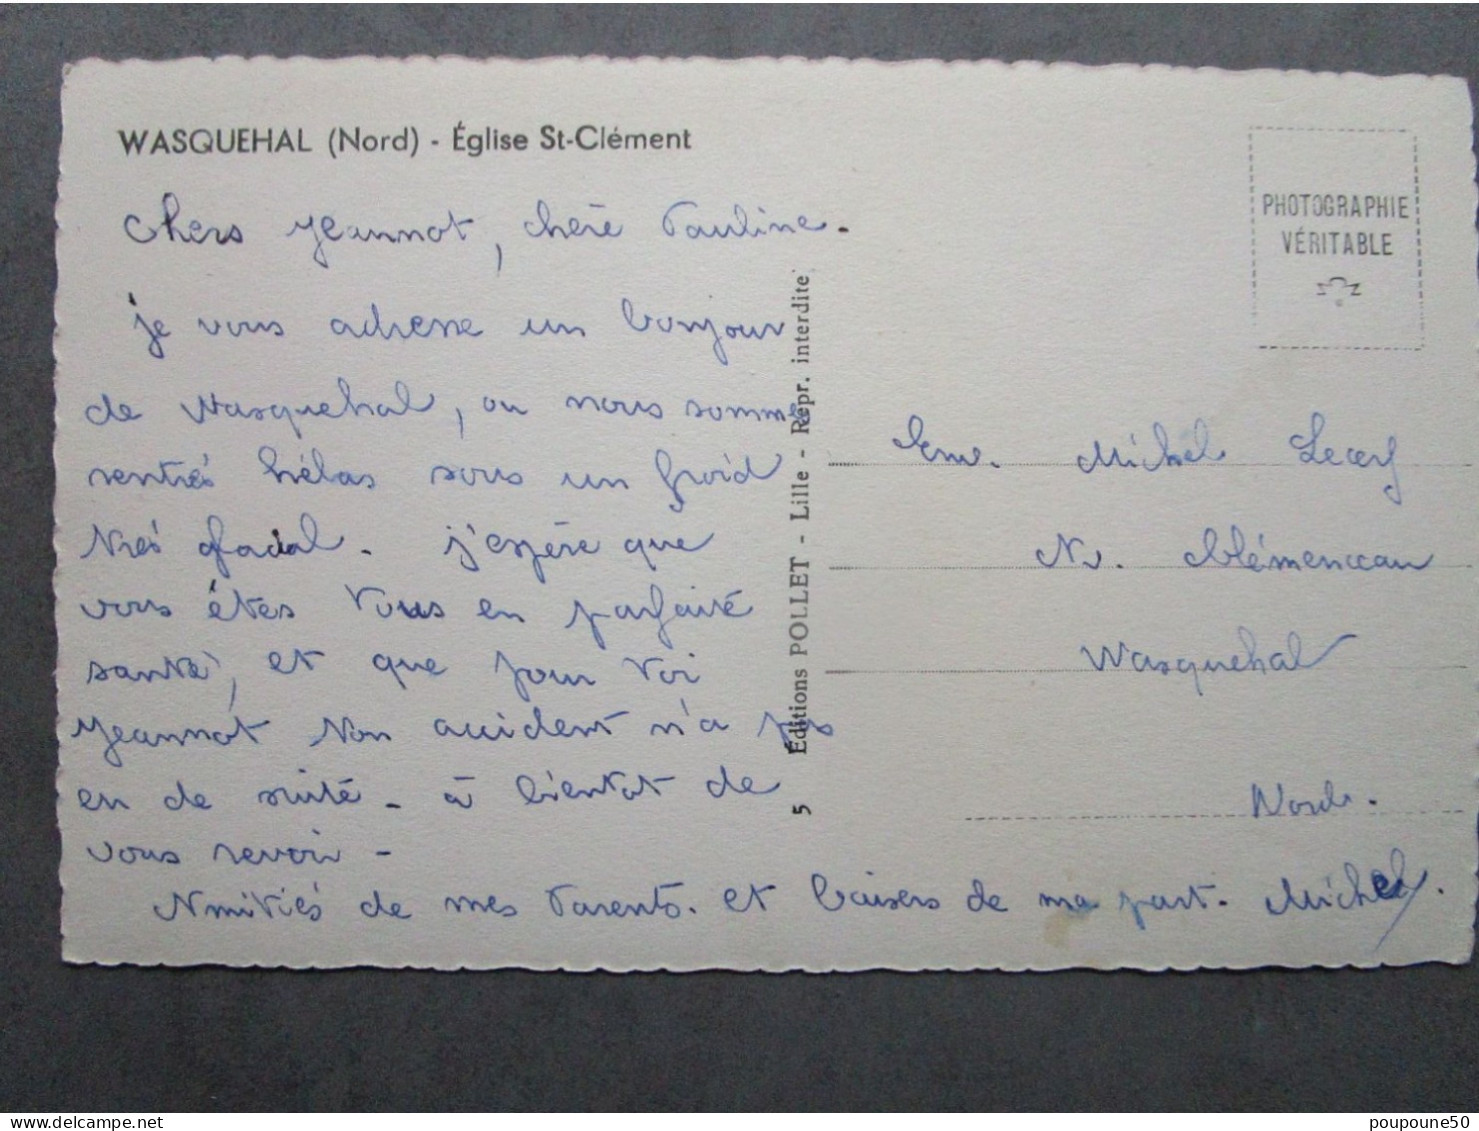 WASQUEHAL (Nord) - Église St-Clément
PHOTOGRAPHIE
VÉRITABLE
Chers Jeannot, chère Pauline.
je vous adresse un bonjour
de Wasquehal, ou nous sommes
rentrés hélas sous un froid
très glacial. j'espère que
vous êtes tous en parfaite
santé, et que pour toi
Jeannot ton accident n'a pas
eu de suite - à bientot de
vous revoir -
Amitiés de mes Parents. et baisers de ma part. Michel.
5 Éditions POLLET - Lille - Repr. interdite
Michel
Av. Clémenceau
Wasquehal
Nord.
poupoune50